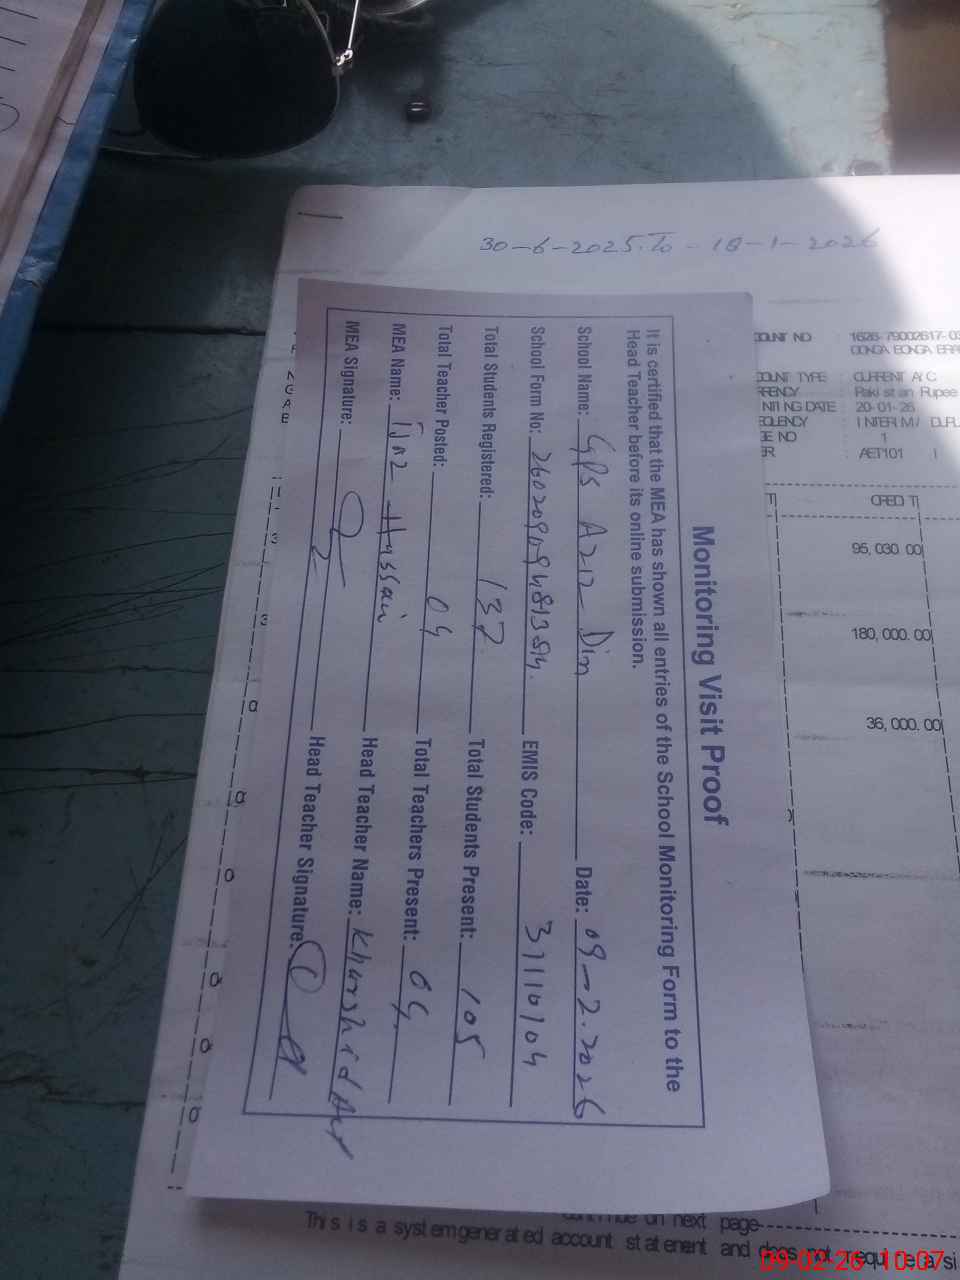 30-6-2025 To - 18-1-2026
Monitoring Visit Proof
It is certified that the MEA has shown all entries of the School Monitoring Form to the
Head Teacher before its online submission.
School Name: GPS Aziz Din Date: 09-2-2026
School Form No: EMIS Code: 37110104
Total Students Registered: 137 Total Students Present: 105
Total Teacher Posted: 04 Total Teachers Present: 04
MEA Name: Ijaz Hussain Head Teacher Name: Khurshid
MEA Signature: Head Teacher Signature:
COUNT NO 1626-79002617-03
DONGA BONGA
COUNT TYPE : CURRENT A/C
RRENCY : Pakistan Rupee
INTING DATE : 20-01-26
EQUENCY : INTERIM/
GE NO : 1
ER : AET101
CREDIT
95,030.00
180,000.00
36,000.00
on next page
This is a system generated account statement and does not require a si
09-02-26 10:07